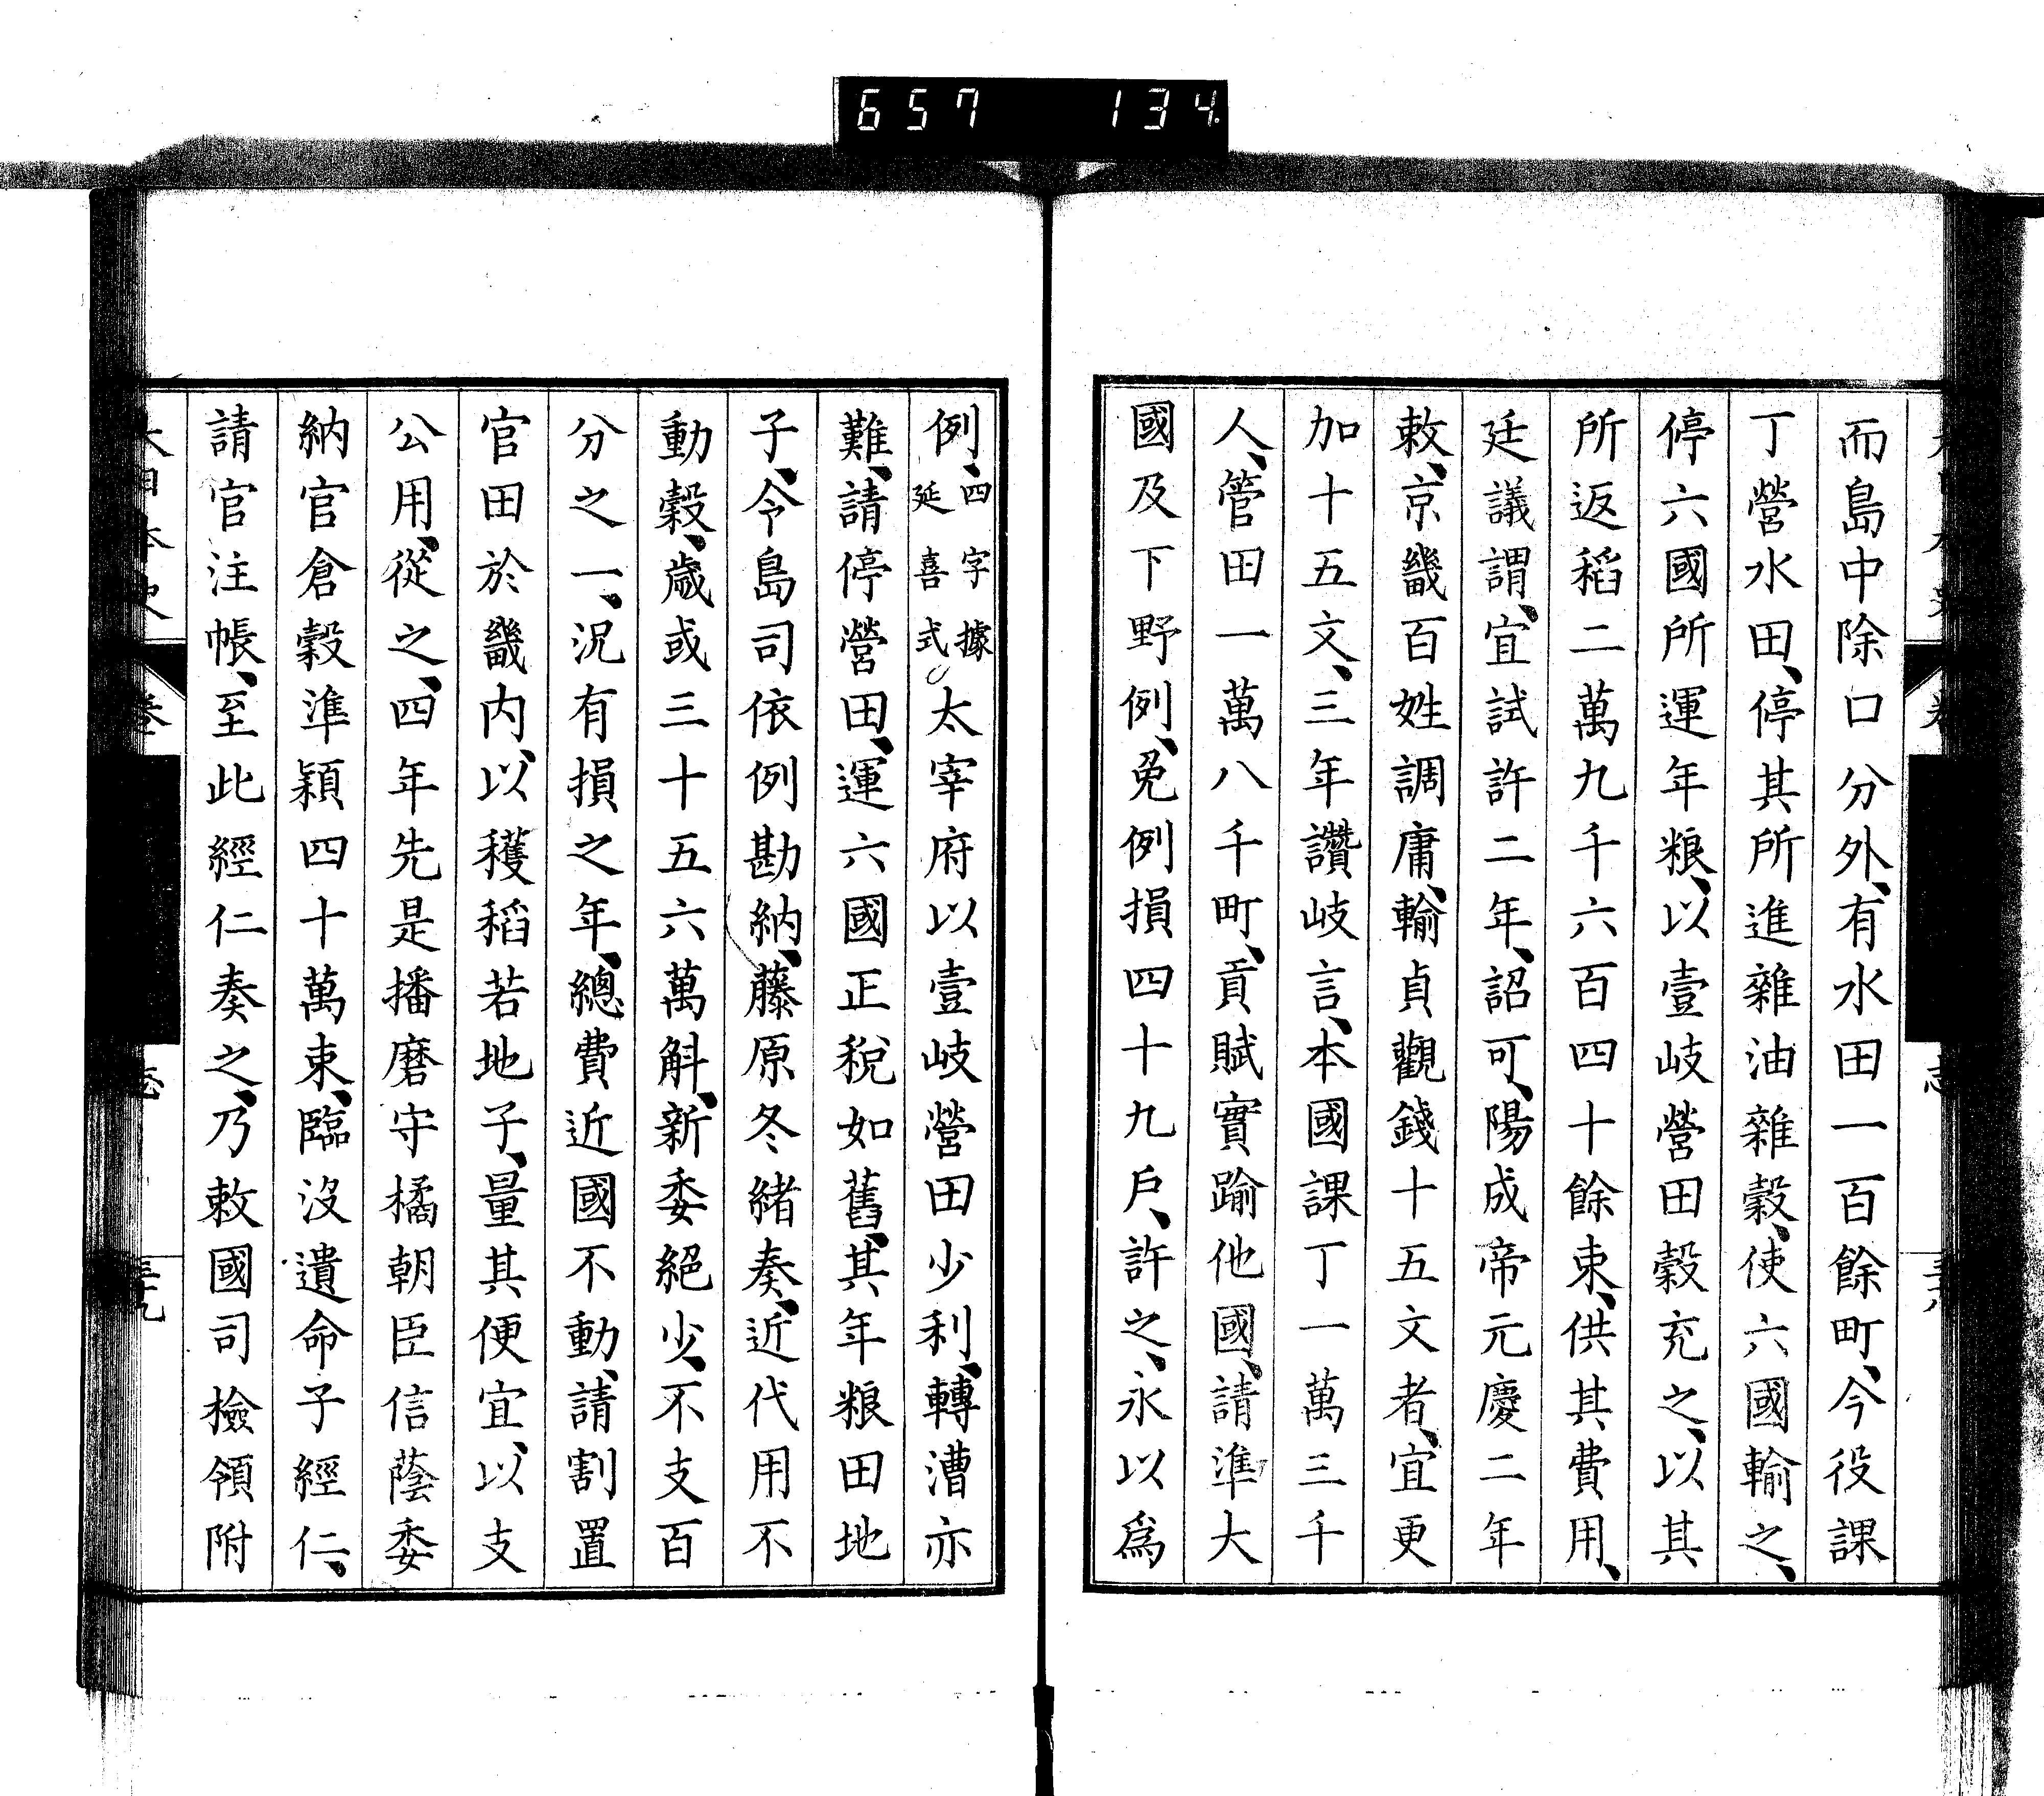 657 134
而島中除口分外、有水田一百餘町、今役課
丁營水田、停其所進雜油雜穀、使六國輸之、
停六國所運年粮、以壹岐營田穀充之、以其
所返稻二萬九千六百四十餘束、供其費用、
廷議謂、宜試許二年、詔可、陽成帝元慶二年
敕、京畿百姓調庸、輸貞觀錢十五文者、宜更
加十五文、三年讚岐言、本國課丁一萬三千
人、管田一萬八千町、貢賦實踰他國、請準大
國及下野例、免例損四十九戶、許之、永以爲
例、四字據延喜式太宰府以壹岐營田少利、轉漕亦
難、請停營田、運六國正税如舊、其年粮田地
子、令島司依例勘納、藤原冬緒奏、近代用不
動穀、歲或三十五六萬斛、新委絕少、不支百
分之一、況有損之年、總費近國不動、請割置
官田於畿内、以穫稻若地子、量其便宜、以支
公用、從之、四年先是播磨守橘朝臣信蔭委
納官倉穀準穎四十萬束、臨沒遺命子經仁、
請官注帳、至此經仁奏之、乃敕國司檢領附
大日本史 卷 志 三十九